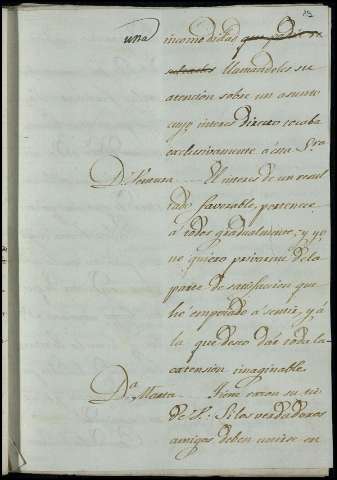 una incomodidad que
llamandoles su
atención sobre un asunto
cuyo interes directo tocaba
exclusivamente á esa S.ra
D.n Ventura El interes de un resul
tado favorable, pertenece
á todos gradualmente, y yo
no quiero privarme de la
parte de satisfaccion que
hé empezado á sentir, y á
la que deseo dar toda la
extension imaginable.
D.a Marta Tiene razon su tio
de V. Si los verdaderos
amigos deben unirse en